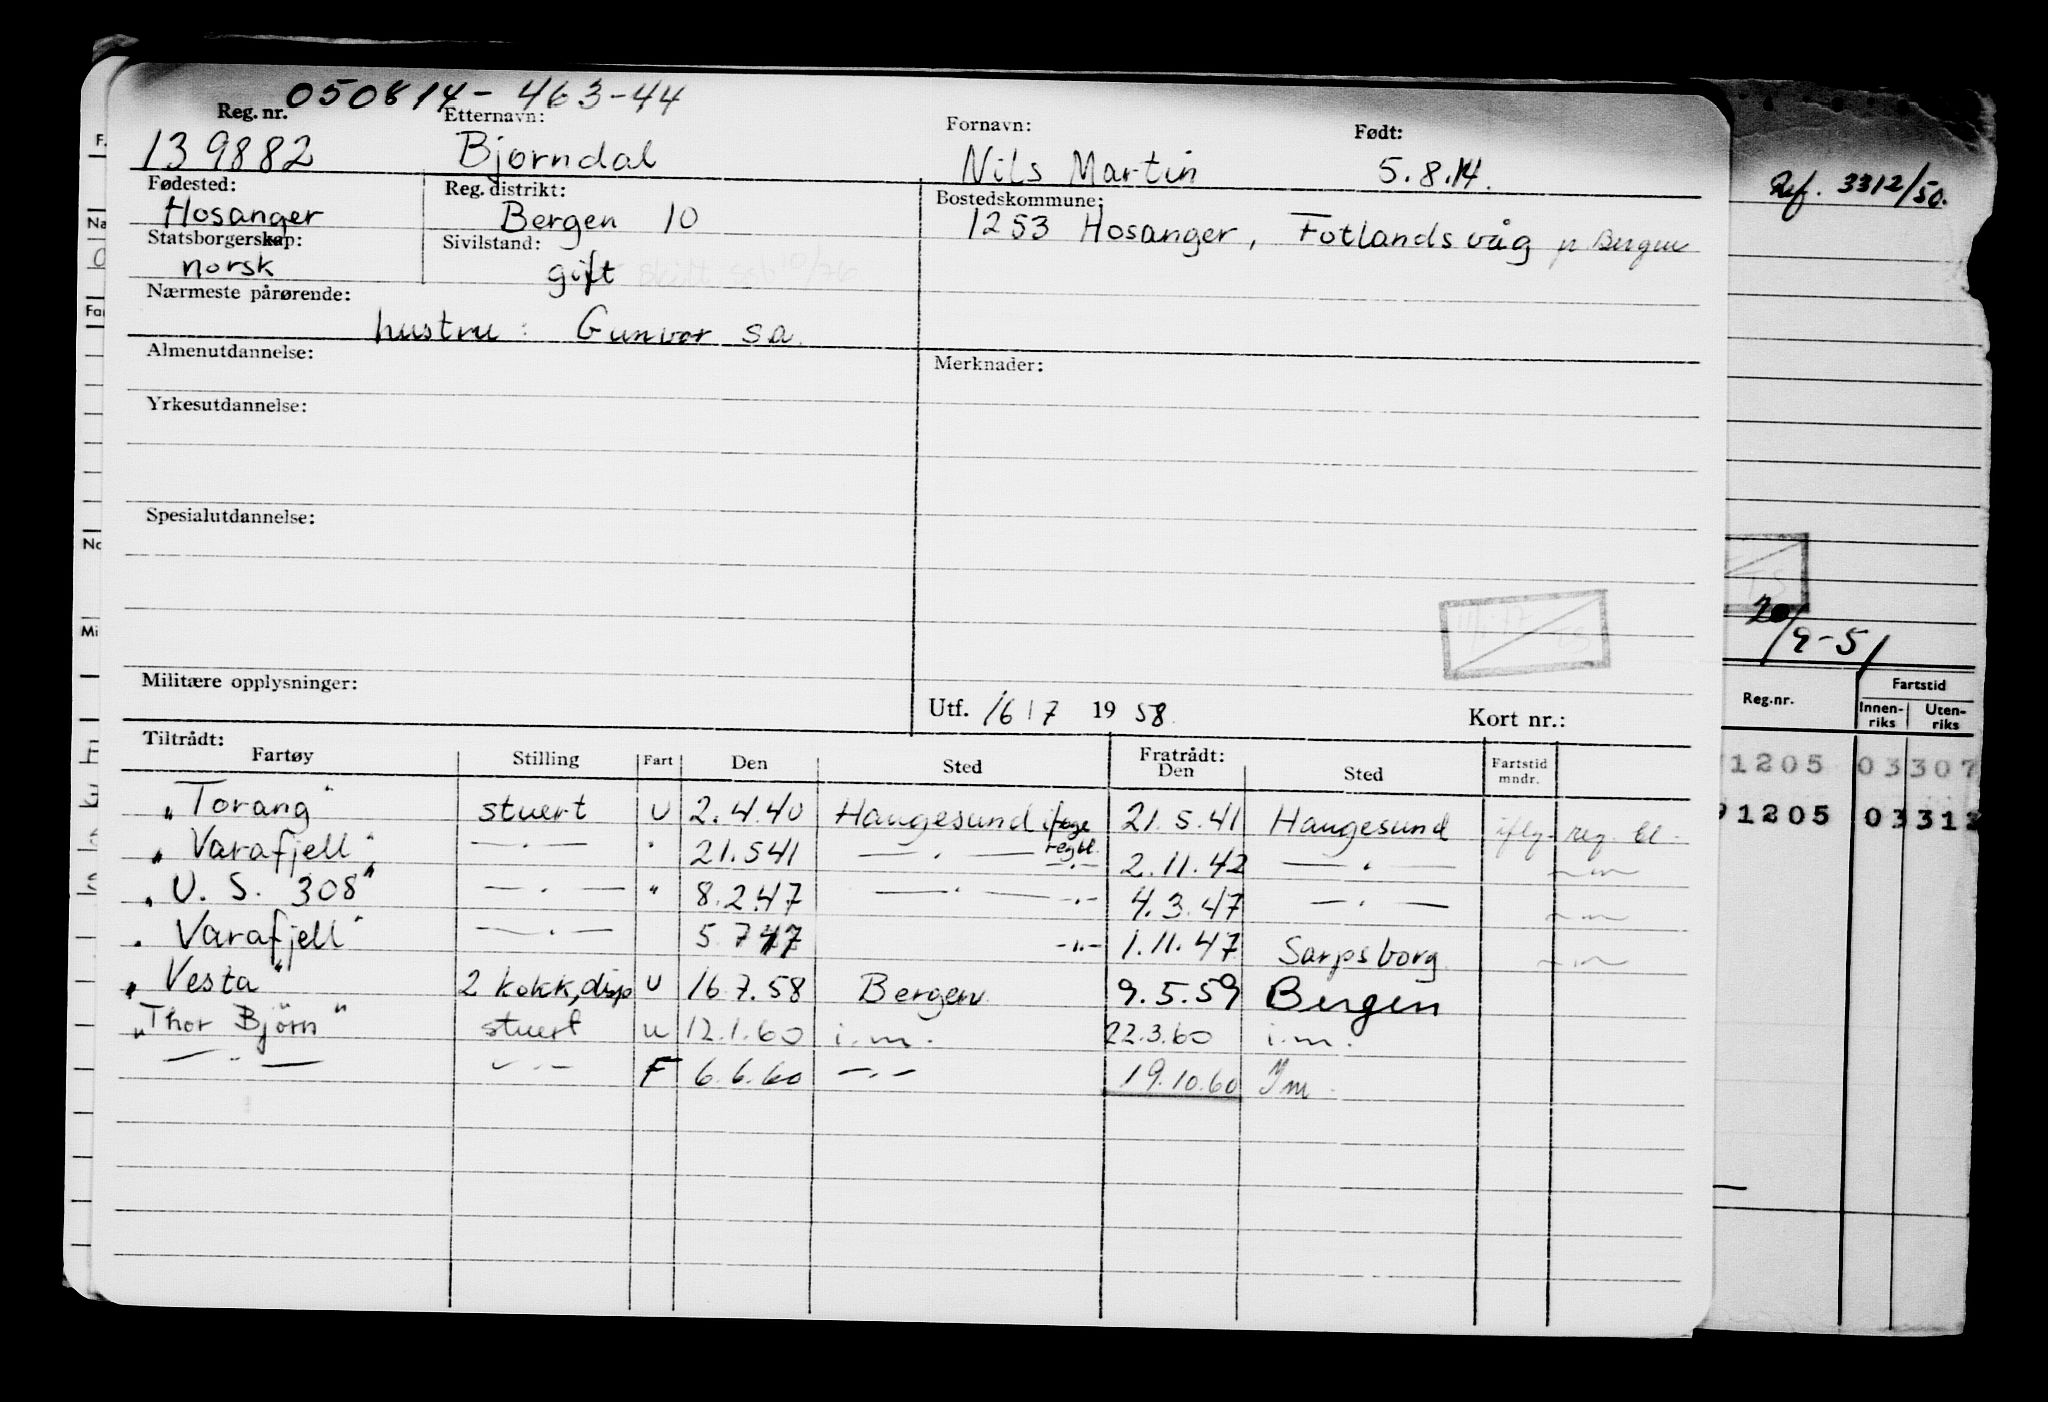 050814-463-44
Reg. nr. Etternavn: Fornavn: Født:
139882 Bjørndal Nils Martin 5.8.14.
Fødested: Reg. distrikt: Bostedskommune:
Hosanger Bergen 10 1253 Hosanger, Fotlandsvåg pr Bergen
Statsborgerskap: Sivilstand:
norsk gift
Nærmeste pårørende:
hustru: Gunvor s.a.
Almenutdannelse: Merknader:
Yrkesutdannelse:
Spesialutdannelse:
Militære opplysninger:
Utf. 16/7 1958. Kort nr.:
Tiltrådt: Fratrådt:
Fartøy Stilling Fart Den Sted Den Sted Fartstid mndr.
"Torang" stuert U 2.4.40 Haugesund ifølge reg bl. 21.5.41 Haugesund iflg. reg. bl.
"Varafjell" — . — " 21.541 — . — -.- 2.11.42 — . —
"U.S. 308" — . — " 8.2.47 — . — -.- 4.3.47 — . —
"Varafjell" — . — 5.7.47 -.- 1.11.47 Sarpsborg
"Vesta" 2 kokk, disp U 16.7.58 Bergen 9.5.59 Bergen
"Thor Björn" stuert u 12.1.60 i.m. 22.3.60 i.m.
— . — — . — F 6.6.60 — . — 19.10.60 Im
Ref. 3312/50.
20/9-51
Reg.nr. Fartstid
Innenriks Utenriks
1205 03307
91205 03312
F.
Na
Far
No
Mi